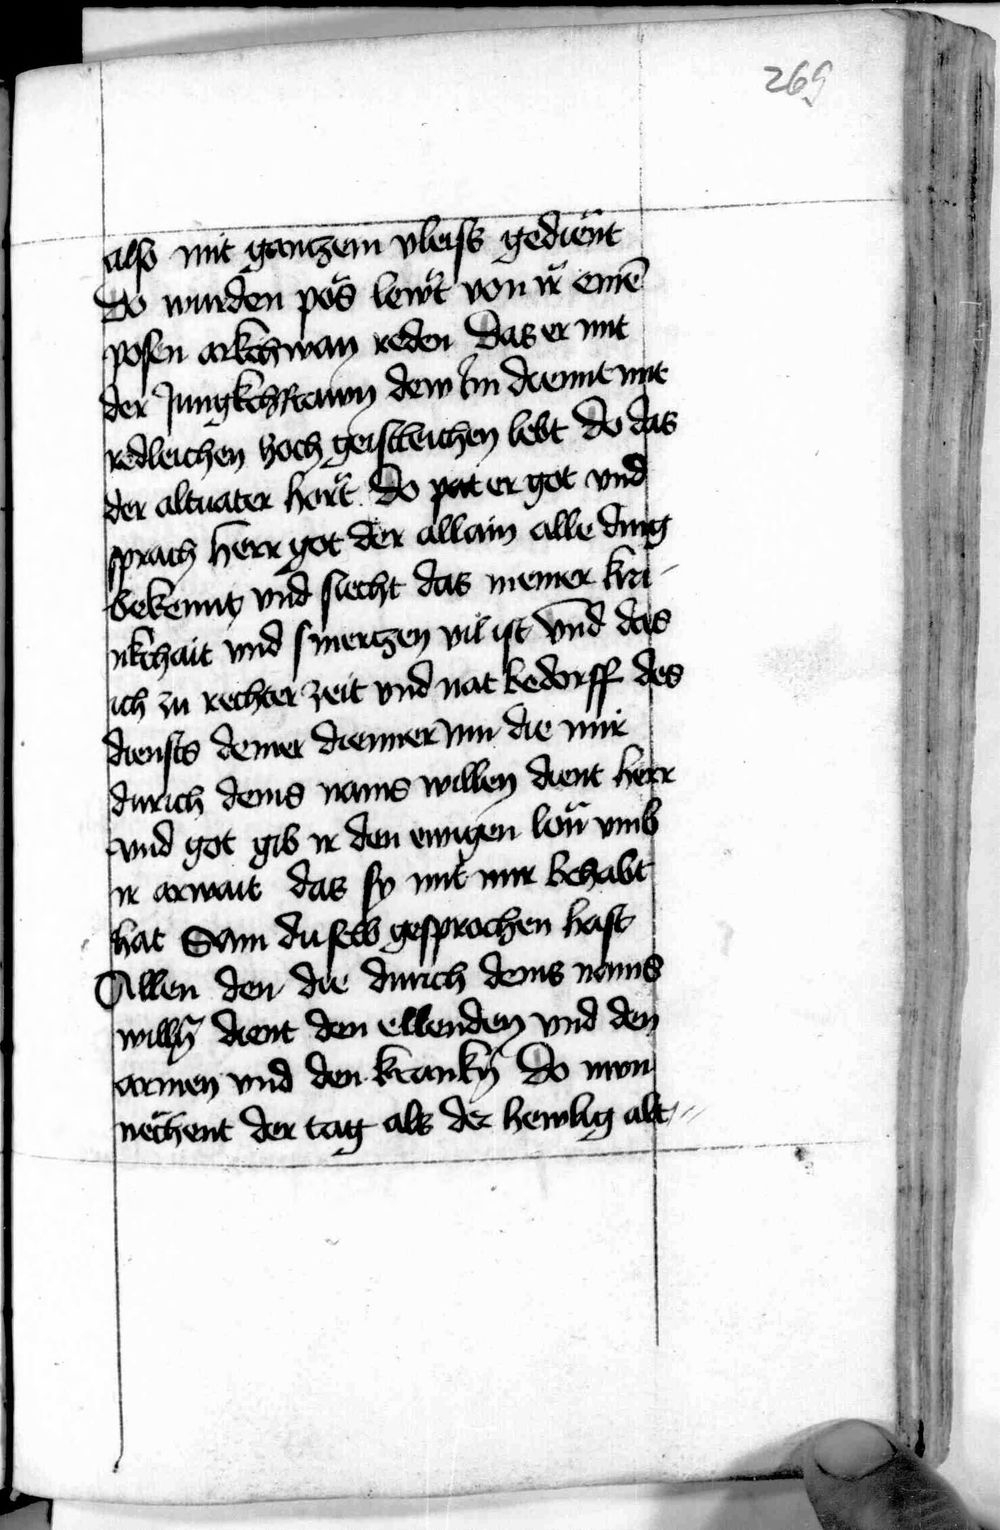 269
also mit ganczem vleiss gedient
Do wurden pös lewt von ir einē
posen arkchwan reden Das er mit
der Jungkchfrawn dew im dient nit
redleichen noch geistleichen lebt do das
der altuater hort Do pat er got vnd
sprach herr got der allain alle ding
bekennt vnd siecht das meiner kra-
nkchait vnd smerczen vil ist vnd das
ich zu rechter zeit vnd nat bedorff des
diensts deiner diennerinn die mir
durich deins nams willen dient herr
vnd got gib ir den ewigen lon vmb
ir arwait das sy mit mir gehabt
hat Sam du selb gesprochen hast
Allen den die durich deins nams
willn dient den ellenden vnd den
armen vnd den krankn Do nvon
nechent der tag als der hewlig alt